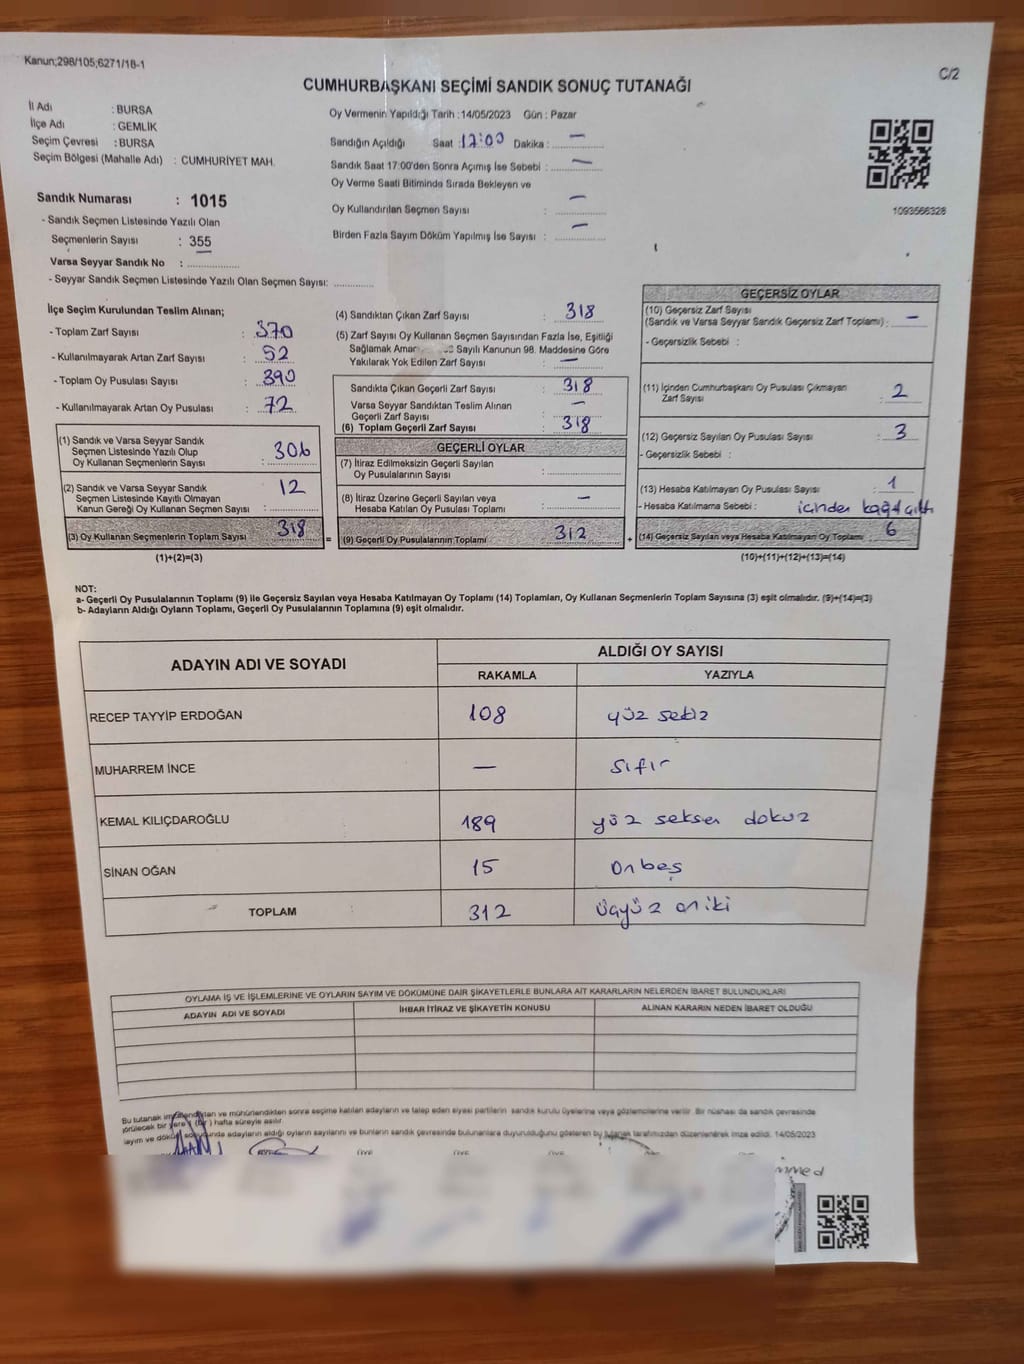 Kanun;298/105;6271/18-1
C/2
CUMHURBAŞKANI SEÇİMİ SANDIK SONUÇ TUTANAĞI
İl Adı : BURSA
İlçe Adı : GEMLİK
Seçim Çevresi : BURSA
Seçim Bölgesi (Mahalle Adı) : CUMHURİYET MAH.
Sandık Numarası : 1015
- Sandık Seçmen Listesinde Yazılı Olan
Seçmenlerin Sayısı : 355
Varsa Seyyar Sandık No :
- Seyyar Sandık Seçmen Listesinde Yazılı Olan Seçmen Sayısı:
Oy Vermenin Yapıldığı Tarih : 14/05/2023 Gün : Pazar
Sandığın Açıldığı Saat : 17:00 Dakika : —
Sandık Saat 17:00'den Sonra Açımış İse Sebebi : —
Oy Verme Saati Bitiminde Sırada Bekleyen ve
Oy Kullandırılan Seçmen Sayısı : —
Birden Fazla Sayım Döküm Yapılmış İse Sayısı : —
1093566328
İlçe Seçim Kurulundan Teslim Alınan;
- Toplam Zarf Sayısı : 370
- Kullanılmayarak Artan Zarf Sayısı : 52
- Toplam Oy Pusulası Sayısı : 390
- Kullanılmayarak Artan Oy Pusulası : 72
(1) Sandık ve Varsa Seyyar Sandık
Seçmen Listesinde Yazılı Olup
Oy Kullanan Seçmenlerin Sayısı : 306
(2) Sandık ve Varsa Seyyar Sandık
Seçmen Listesinde Kayıtlı Olmayan
Kanun Gereği Oy Kullanan Seçmen Sayısı : 12
(3) Oy Kullanan Seçmenlerin Toplam Sayısı 318
(1)+(2)=(3)
(4) Sandıktan Çıkan Zarf Sayısı : 318
(5) Zarf Sayısı Oy Kullanan Seçmen Sayısından Fazla İse, Eşitliği
Sağlamak Sayılı Kanunun 98. Maddesine Göre
Yakılarak Yok Edilen Zarf Sayısı : —
Sandıkta Çıkan Geçerli Zarf Sayısı : 318
Varsa Seyyar Sandıktan Teslim Alınan
Geçerli Zarf Sayısı : —
(6) Toplam Geçerli Zarf Sayısı : 318
GEÇERLİ OYLAR
(7) İtiraz Edilmeksizin Geçerli Sayılan
Oy Pusulalarının Sayısı :
(8) İtiraz Üzerine Geçerli Sayılan veya
Hesaba Katılan Oy Pusulası Toplamı : —
= (9) Geçerli Oy Pusulalarının Toplamı 312
GEÇERSİZ OYLAR
(10) Geçersiz Zarf Sayısı
(Sandık ve Varsa Seyyar Sandık Geçersiz Zarf Toplamı) : —
- Geçersizlik Sebebi :
(11) İçinden Cumhurbaşkanı Oy Pusulası Çıkmayan
Zarf Sayısı : 2
(12) Geçersiz Sayılan Oy Pusulası Sayısı : 3
- Geçersizlik Sebebi :
(13) Hesaba Katılmayan Oy Pusulası Sayısı : 1
- Hesaba Katılmama Sebebi : içinden kağıt çıktı
+ (14) Geçersiz Sayılan veya Hesaba Katılmayan Oy Toplamı 6
(10)+(11)+(12)+(13)=(14)
NOT:
a- Geçerli Oy Pusulalarının Toplamı (9) ile Geçersiz Sayılan veya Hesaba Katılmayan Oy Toplamı (14) Toplamları, Oy Kullanan Seçmenlerin Toplam Sayısına (3) eşit olmalıdır. (9)+(14)=(3)
b- Adayların Aldığı Oyların Toplamı, Geçerli Oy Pusulalarının Toplamına (9) eşit olmalıdır.
ADAYIN ADI VE SOYADI
ALDIĞI OY SAYISI
RAKAMLA YAZIYLA
RECEP TAYYİP ERDOĞAN 108 yüz sekiz
MUHARREM İNCE — sıfır
KEMAL KILIÇDAROĞLU 189 yüz seksen dokuz
SİNAN OĞAN 15 onbeş
TOPLAM 312 üçyüz oniki
OYLAMA İŞ VE İŞLEMLERİNE VE OYLARIN SAYIM VE DÖKÜMÜNE DAİR ŞİKAYETLERLE BUNLARA AİT KARARLARIN NELERDEN İBARET BULUNDUKLARI
ADAYIN ADI VE SOYADI İHBAR İTİRAZ VE ŞİKAYETİN KONUSU ALINAN KARARIN NEDEN İBARET OLDUĞU
Bu tutanak ve mühürlendikten sonra seçime katılan adayların ve talep eden siyasi partilerin sandık kurulu üyelerine veya gözlemcilerine verilir. Bir nüshası da sandık çevresinde
bir yere (bir) hafta süreyle asılır.
adayların aldığı oyların sayılarını ve bunların sandık çevresinde bulunanlara duyurulduğunu gösteren bu tutanak tarafımızdan düzenlenerek imza edildi. 14/05/2023